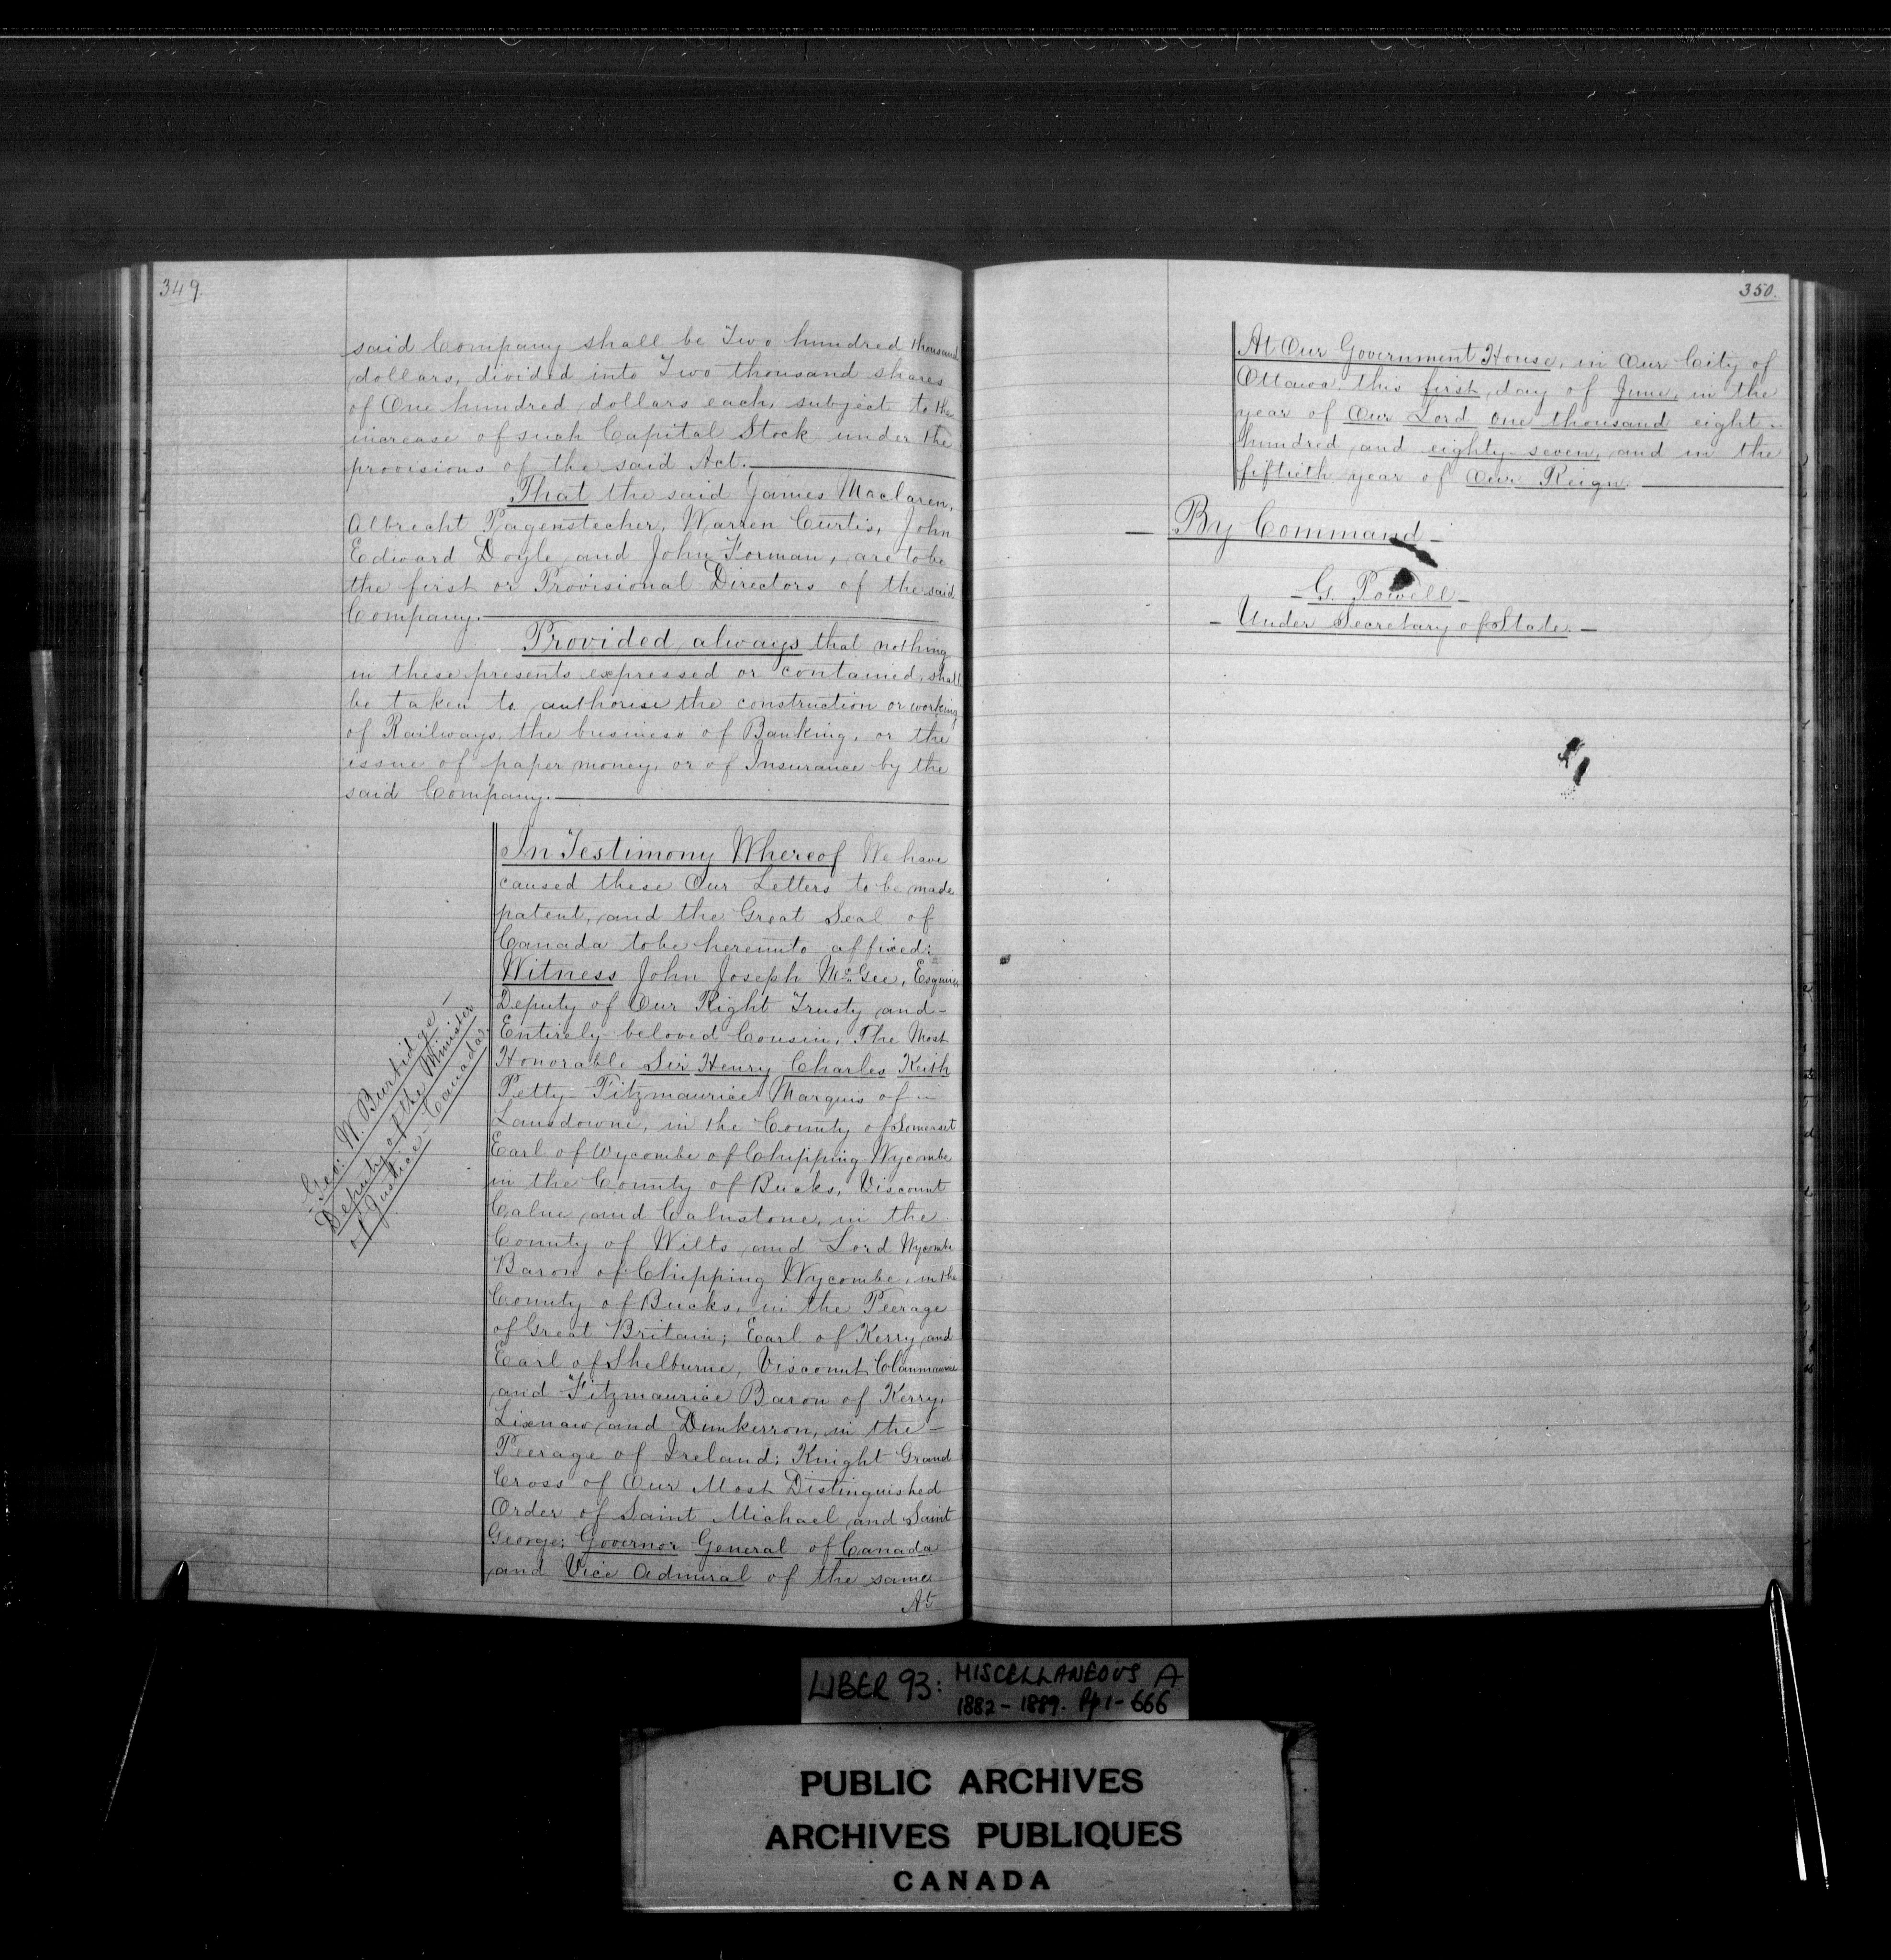 349.
said Company shall be Two hundred thousand
dollars, divided into Two thousand shares
of One hundred dollars each, subject to the
increase of such Capital Stock under the
provisions of the said Act.
That the said James Maclaren,
Albrecht Pagenstecher, Warren Curtis, John
Edward Doyle and John Forman, are to be
the first or Provisional Directors of the said
Company.
Provided always that nothing
in these presents expressed or contained, shall
be taken to authorise the construction or working
of Railways, the business of Banking, or the
issue of paper money, or of Insurance by the
said Company.
Geo: W. Burbidge
Deputy of the Minister
of Justice - Canada.
In Testimony Whereof We have
caused these Our Letters to be made
patent, and the Great Seal of
Canada to be hereunto affixed:
Witness John Joseph McGee, Esquire,
Deputy of Our Right Trusty and -
Entirely beloved Cousin, The Most
Honorable Sir Henry Charles Keith
Petty-Fitzmaurice Marquis of -
Lansdowne, in the County of Somerset
Earl of Wycombe of Chipping Wycombe
in the County of Bucks, Viscount
Calne and Calnstone, in the
County of Wilts and Lord Wycombe
Baron of Chipping Wycombe, in the
County of Bucks, in the Peerage
of Great Britain; Earl of Kerry and
Earl of Shelburne, Viscount Clanmaurice
and Fitzmaurice Baron of Kerry,
Lixnaw and Dunkerron, in the -
Peerage of Ireland; Knight Grand
Cross of Our Most Distinguished
Order of Saint Michael and Saint
George; Governor General of Canada
and Vice Admiral of the same.
At
350.
At Our Government House, in Our City of
Ottawa, this first day of June, in the
year of Our Lord one thousand eight -
hundred and eighty-seven, and in the
fiftieth year of Our Reign.
- By Command -
- G. Powell -
- Under Secretary of State. -
LIBER 93: MISCELLANEOUS A
1882 - 1889. Pp 1 - 666
PUBLIC ARCHIVES
ARCHIVES PUBLIQUES
CANADA